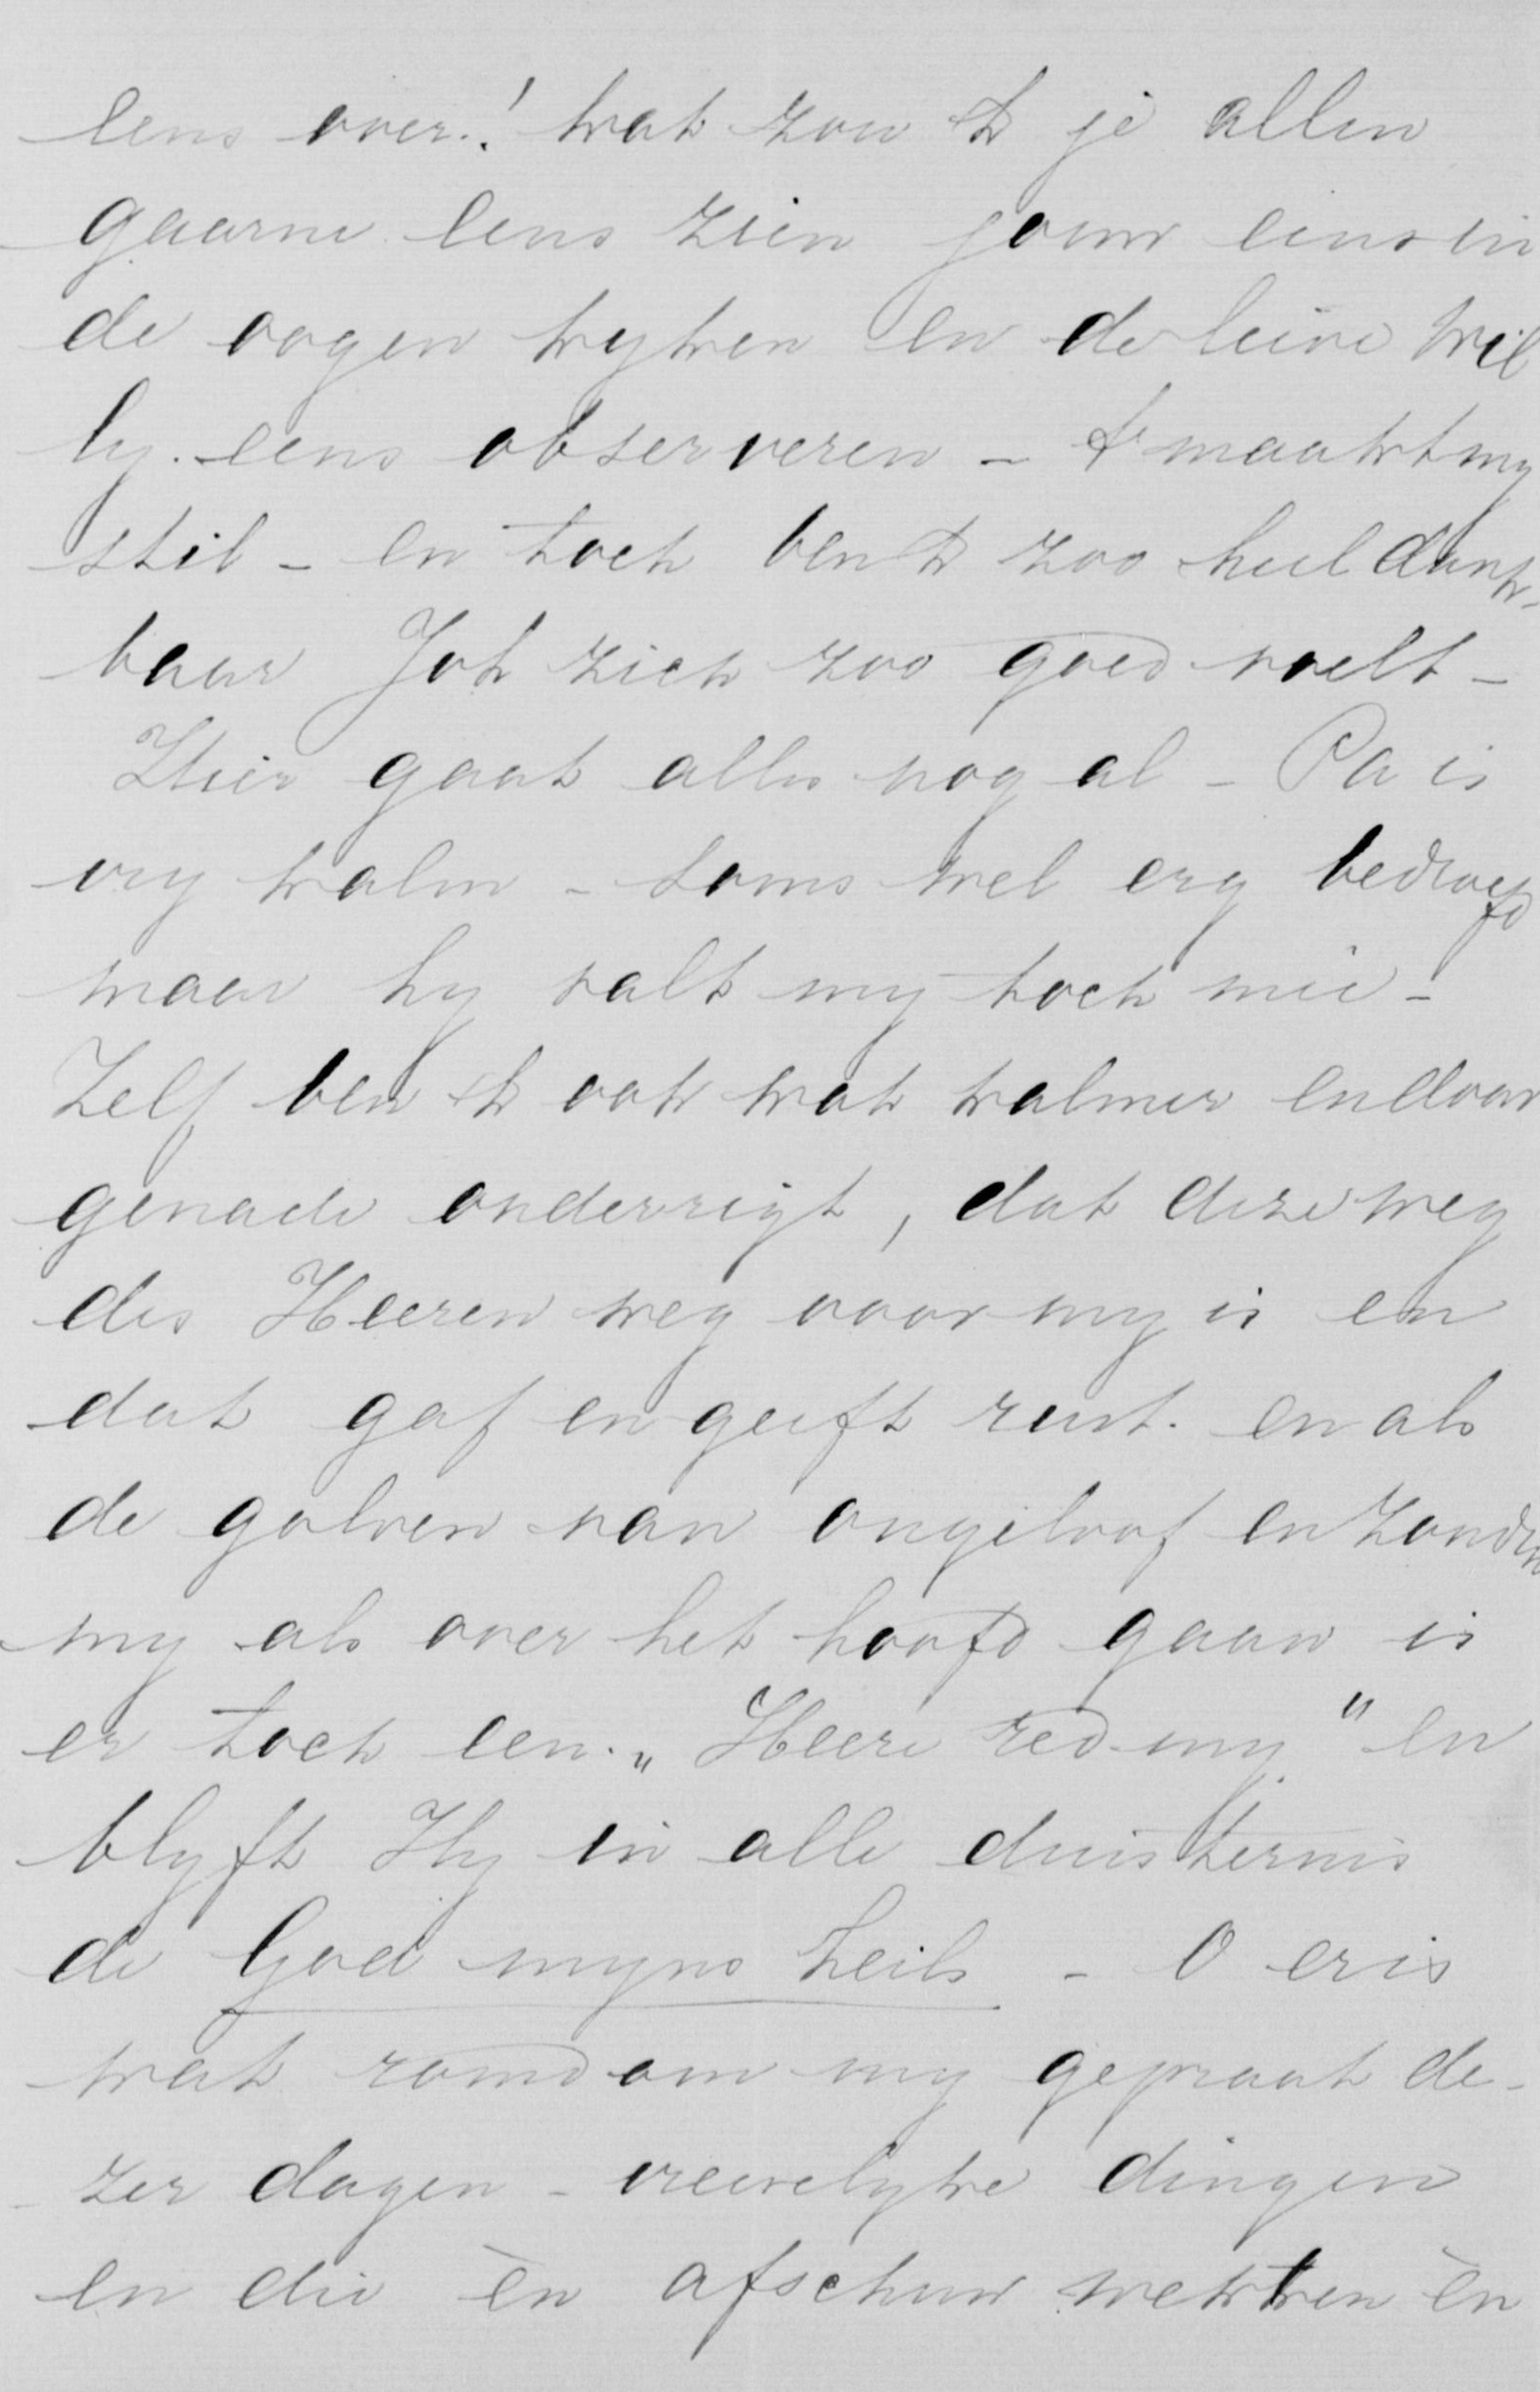 eens over! wat zou ik je allen
gaarne eens zien jouw eens in
de oogen kyken en de kleine Wil
ly. eens observeren - 't maakt my
stil - en toch ben ik zoo heel dank-
baar Joh zich zoo goed voelt -
Hier gaat alles nog al - Pa is
vry kalm - soms wel erg bedroefd
maar hy valt my toch mee -
Zelf ben ik ook wat kalmer en door
genade onderrigt, dat deze weg
des Heeren weg voor my is en
dat gaf en geeft rust. en als
de golven van ongeloof en zonden
my als over het hoofd gaan is
er toch een „Heere red my" en
blyft Hy in alle duisternis
de God myns heils - O er is
wat rondom my gepraat de-
zer dagen - vreeselyke dingen
en die èn afschuw wekken èn